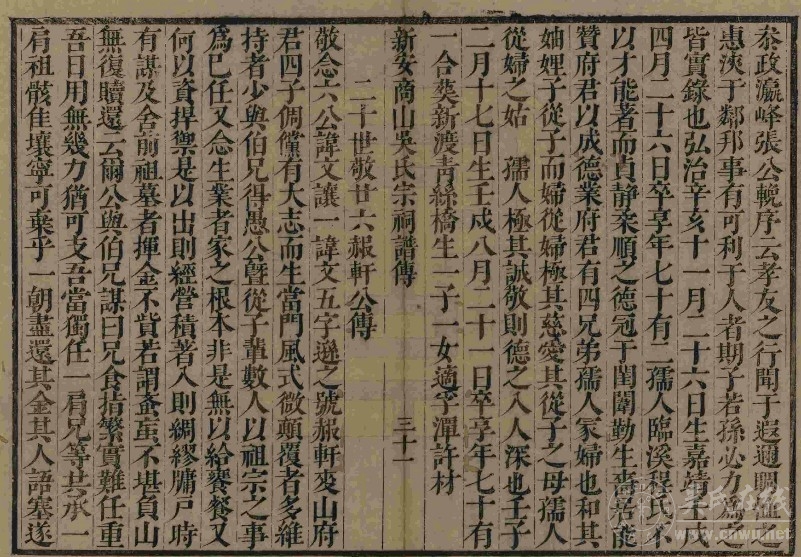 叅政瀛峰張公輓序云孝友之行聞于遐邇闓懌之
惠浹于鄰邦事有可利于人者期子若孫必力爲之
皆實錄也弘治辛亥十一月二十六日生嘉靖壬戌
四月二十六日卒享年七十有二孺人臨溪程氏不
以才能者而貞靜柔順之德冠于閨闈勤生嗇能
贊府君以成德業府君有四兄弟孺人冢婦也和其
妯娌子從子而婦從婦極其慈愛其從子之母孺人
從婦之姑 孺人極其誠敬則德之入人深也壬子
二月十七日生壬戌八月二十一日卒享年七十有
一合葬新渡青絲橋生一子一女適孚潭許材
新安商山吳氏宗祠譜傳 三十一
二十世敬廿六赧軒公傳
敬念六公諱文讓一諱文五字遜之號赧軒奕山府
君四子倜儻有大志而生當門風式微顛覆者多維
持者少與伯兄得愚公曁從子輩數人以祖宗之事
爲己任又念生業者家之根本非是無以給饔餐又
何以資捍禦是以出則經營積著入則綢繆牖戸時
有謀及舍前祖墓者揮金不貲若謂蚤䖟不堪負山
無復贖還云爾公與伯兄謀曰兄食指繁實難任重
吾日用無幾力猶可支吾當獨任一肩兄等共承一
肩祖骸佳壤寧可棄乎一朝盡還其金其人語塞遂
吴氏在线
www.cnwu.net